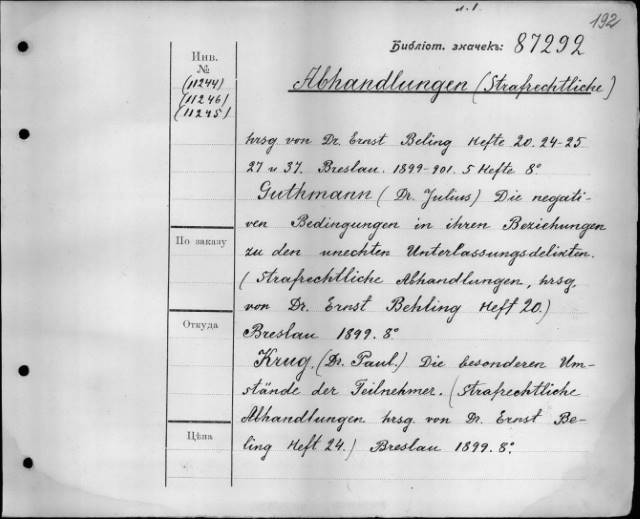 л. 1
192
Библіот. значекъ: 87292
Инв.
№
(11244)
(11246)
(11245)
Abhandlungen (Strafrechtliche)
hrsg. von Dr. Ernst Beling Hefte 20. 24-25
27 u 37. Breslau. 1899-901. 5 Hefte 8º
Guthmann (Dr. Julius) Die negati-
ven Bedingungen in ihren Beziehungen
zu den unechten Unterlassungsdelikten.
(Strafrechtliche Abhandlungen, hrsg.
von Dr. Ernst Behling Heft 20.)
Breslau 1899. 8º
Krug. (Dr. Paul.) Die besonderen Um-
stände der Teilnehmer. (Strafrechtliche
Abhandlungen hrsg. von Dr. Ernst Be-
ling Heft 24.) Breslau 1899. 8º
По заказу
Откуда
Цѣна